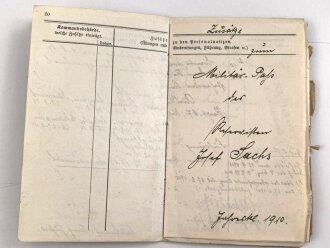 20
Kommandobehörde,
welche Zusätze einträgt.
Datum.
Zusätze
(Übungen und
Zusätze
zu den Personalnotizen
Führung, Strafen u.)
zum
Militär-Paß
des
Reservisten
Josef Sachs
1910.